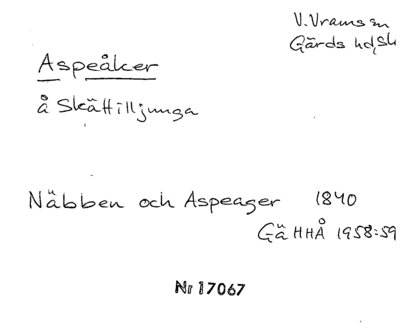 V. Vrams sn
Gärds hd, Sk
Aspeåker
å Skättilljunga
Näbben och Aspeager 1840
Gä HHÅ 1958:59
Nr 17067